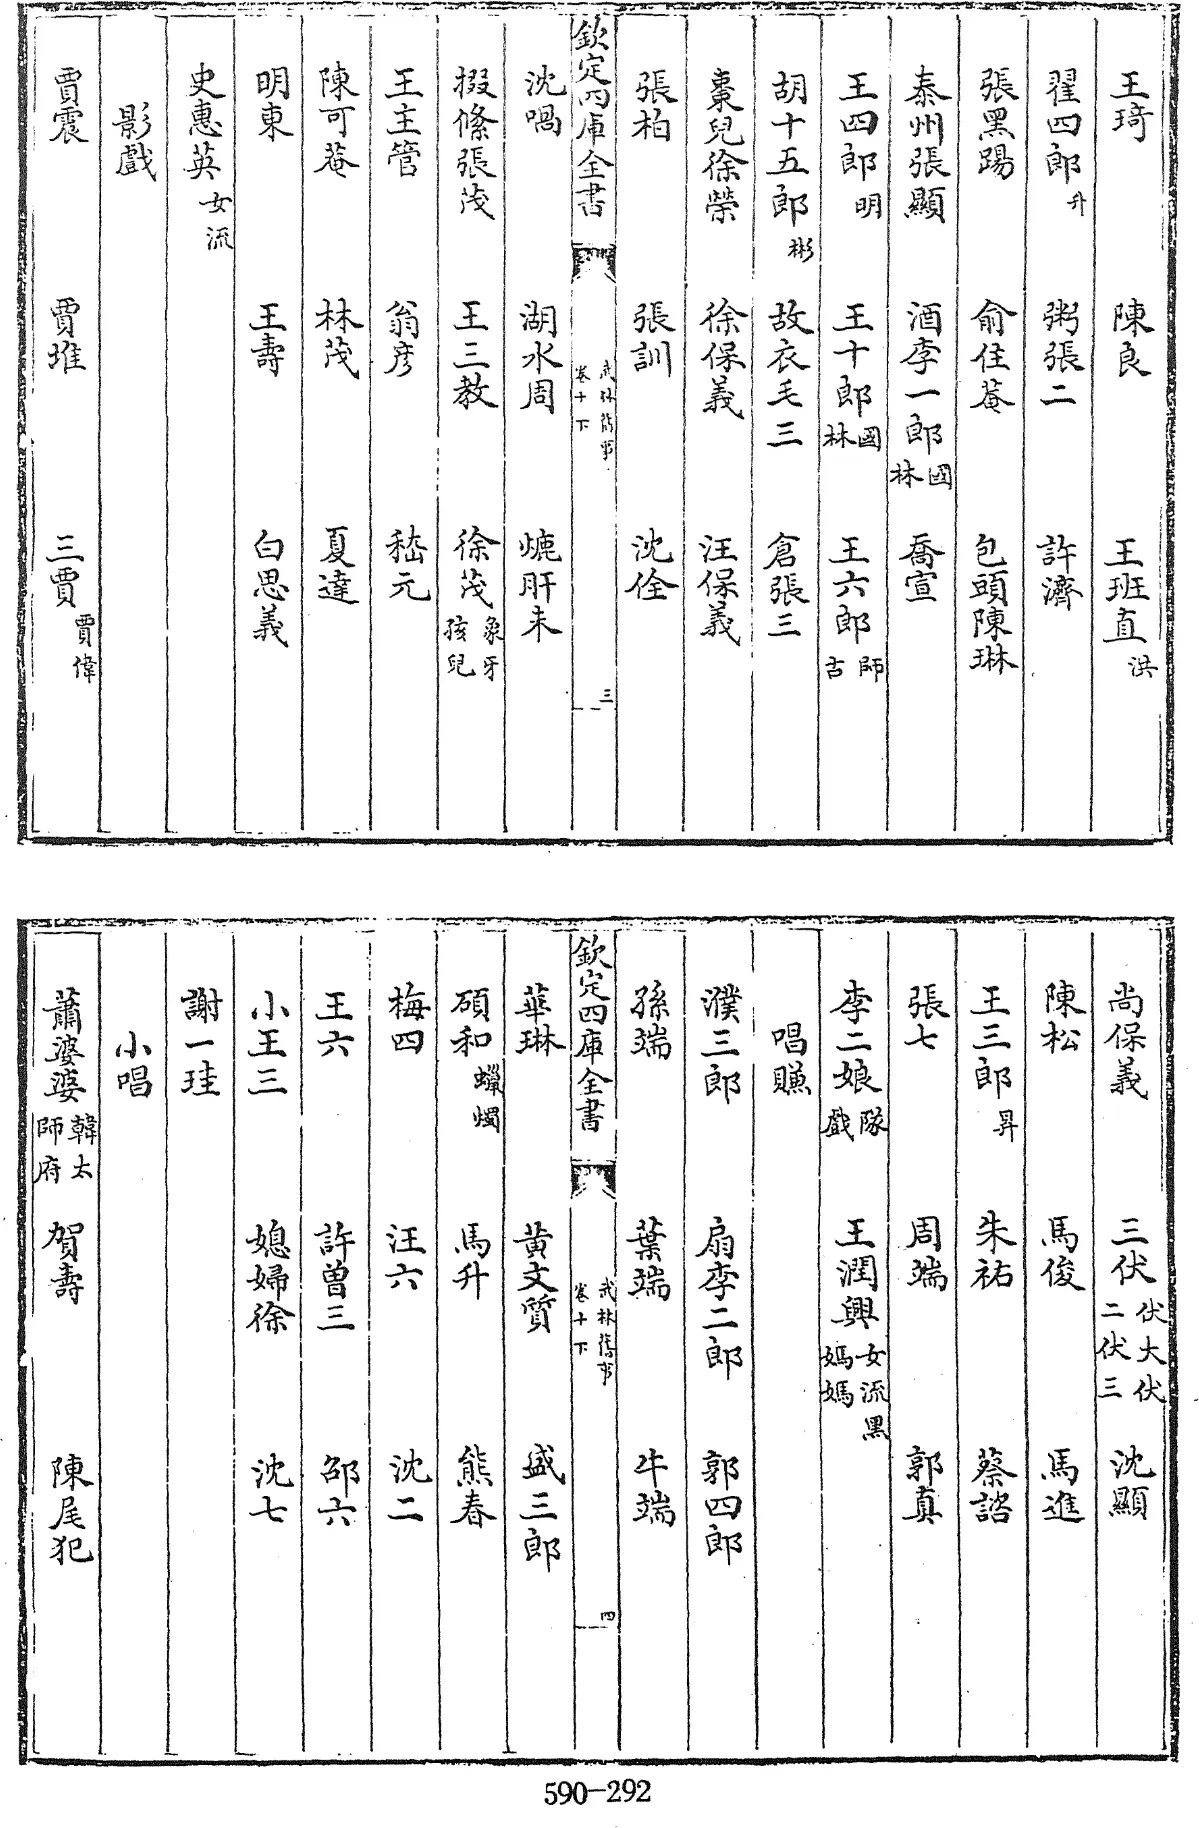 王琦　陳良　王班直洪
翟四郎升　粥張二　許濟
張黑踢　俞住菴　包頭陳琳
泰州張顯　酒李一郎國林　喬宣
王四郎明　王十郎國林　王六郎師古
胡十五郎彬　故衣毛三　倉張三
棗兒徐榮　徐保義　汪保義
張柏　張訓　沈佺
欽定四庫全書　武林舊事卷十下　三
沈喎　湖水周　熝肝朱
掇條張茂　王三教　徐茂象牙孩兒
王主管　翁彦　嵇元
陳可菴　林茂　夏達
明東　王壽　白思義
史惠英女流
影戲
賈震　賈堆　三賈賈偉
尚保義　三伏伏大伏二伏三　沈顯
陳松　馬俊　馬進
王三郎昇　朱祐　蔡諮
張七　周端　郭真
李二娘隊戲　王潤興女流黑媽媽
唱賺
濮三郎　扇李二郎　郭四郎
孫端　葉端　牛端
欽定四庫全書　武林舊事卷十下　四
華琳　黄文質　盛三郎
碩和蠟燭　馬升　熊春
梅四　汪六　沈二
王六　許曾三　邵六
小王三　媳婦徐　沈七
謝一珪
小唱
蕭婆婆韓太師府　賀壽　陳尾犯
590-292